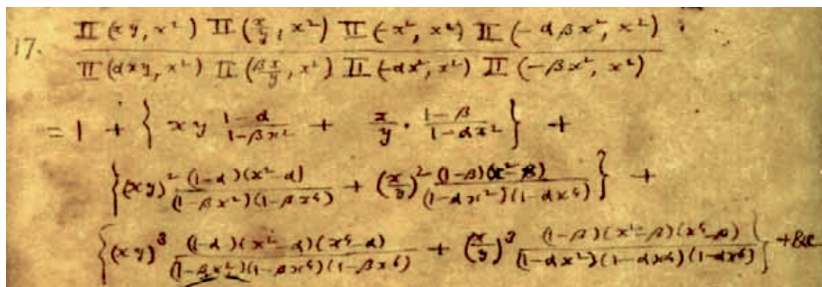 17. Π(xy, x²) Π(x/y, x²) Π(-x², x²) Π(-αβx², x²)
Π(αxy, x²) Π(βx/y, x²) Π(-αx², x²) Π(-βx², x²)
= 1 + { xy (1-α)/(1-βx²) + x/y · (1-β)/(1-αx²) } +
{ (xy)² (1-α)(x²-α)/(1-βx²)(1-βx⁴) + (x/y)² (1-β)(x²-β)/(1-αx²)(1-αx⁴) } +
{ (xy)³ (1-α)(x²-α)(x⁴-α)/(1-βx²)(1-βx⁴)(1-βx⁶) + (x/y)³ (1-β)(x²-β)(x⁴-β)/(1-αx²)(1-αx⁴)(1-αx⁶) } + &c